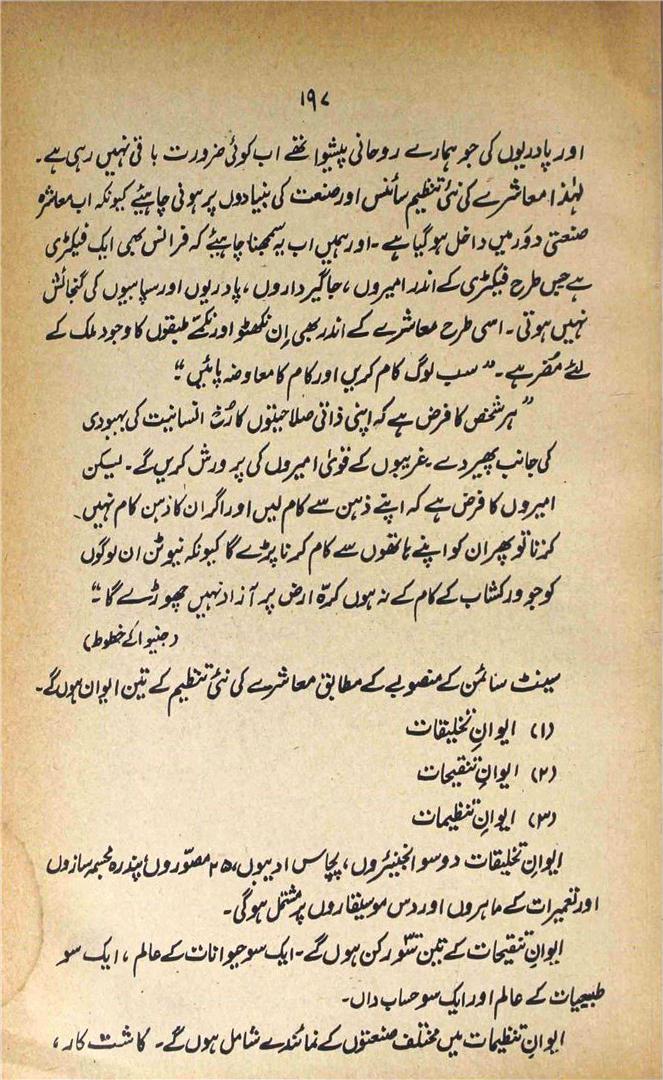 ۱۹۷
اور پادریوں کی جو ہمارے روحانی پیشوا تھے اب کوئی ضرورت باقی نہیں رہی ہے۔
لہٰذا معاشرے کی نئی تنظیم سائنس اور صنعت کی بنیادوں پر ہونی چاہیئے کیونکہ اب معاشرہ
صنعتی دَور میں داخل ہو گیا ہے۔ اور ہمیں اب یہ سمجھنا چاہیئے کہ فرانس بھی ایک فیکٹری
ہے جس طرح فیکٹری کے اندر امیروں، جاگیرداروں، پادریوں اور سپاہیوں کی گنجائش
نہیں ہوتی۔ اسی طرح معاشرے کے اندر بھی اِن نکھٹو اور نکمّے طبقوں کا وجود ملک کے
لئے مُضر ہے۔ ”سب لوگ کام کریں اور کام کا معاوضہ پائیں“
”ہر شخص کا فرض ہے کہ اپنی ذاتی صلاحیتوں کا رُخ انسانیت کی بہبودی
کی جانب پھیر دے۔ غریبوں کے قویٰ امیروں کی پرورش کریں گے۔ لیکن
امیروں کا فرض ہے کہ اپنے ذہن سے کام لیں اور اگر ان کا ذہن کام نہیں
کرتا تو پھر ان کو اپنے ہاتھوں سے کام کرنا پڑے گا کیونکہ نیوٹن ان لوگوں
کو جو ورکشاب کے کام کے نہ ہوں کرۂ ارض پر آزاد نہیں چھوڑے گا۔“
(جنیوا کے خطوط)
سینٹ سائمن کے منصوبے کے مطابق معاشرے کی نئی تنظیم کے تین ایوان ہوں گے۔
(۱) ایوانِ تخلیقات
(۲) ایوانِ تنقیحات
(۳) ایوانِ تنظیمات
ایوانِ تخلیقات دو سو انجنیئروں، پچاس ادیبوں، ۲۵ مصوّروں، پندرہ مجسمہ سازوں
اور تعمیرات کے ماہروں اور دس موسیقاروں پر مشتمل ہوگی۔
ایوانِ تنقیحات کے تین سَو رکن ہوں گے۔ ایک سو حیوانات کے عالم، ایک سو
طبیعیات کے عالم اور ایک سو حساب داں۔
ایوانِ تنظیمات میں مختلف صنعتوں کے نمائندے شامل ہوں گے۔ کاشت کار،